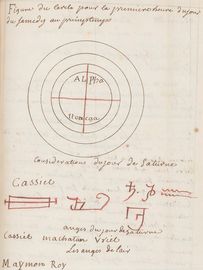 Figure du cercle pour la premiere heure du jour
du samedy au printemps
ALpha
et omega
Considerations du jour de Saturne
Cassiel
anges du jour de saturne
Cassiel machatan Vriel
Les anges de l'air
Maymom Roy